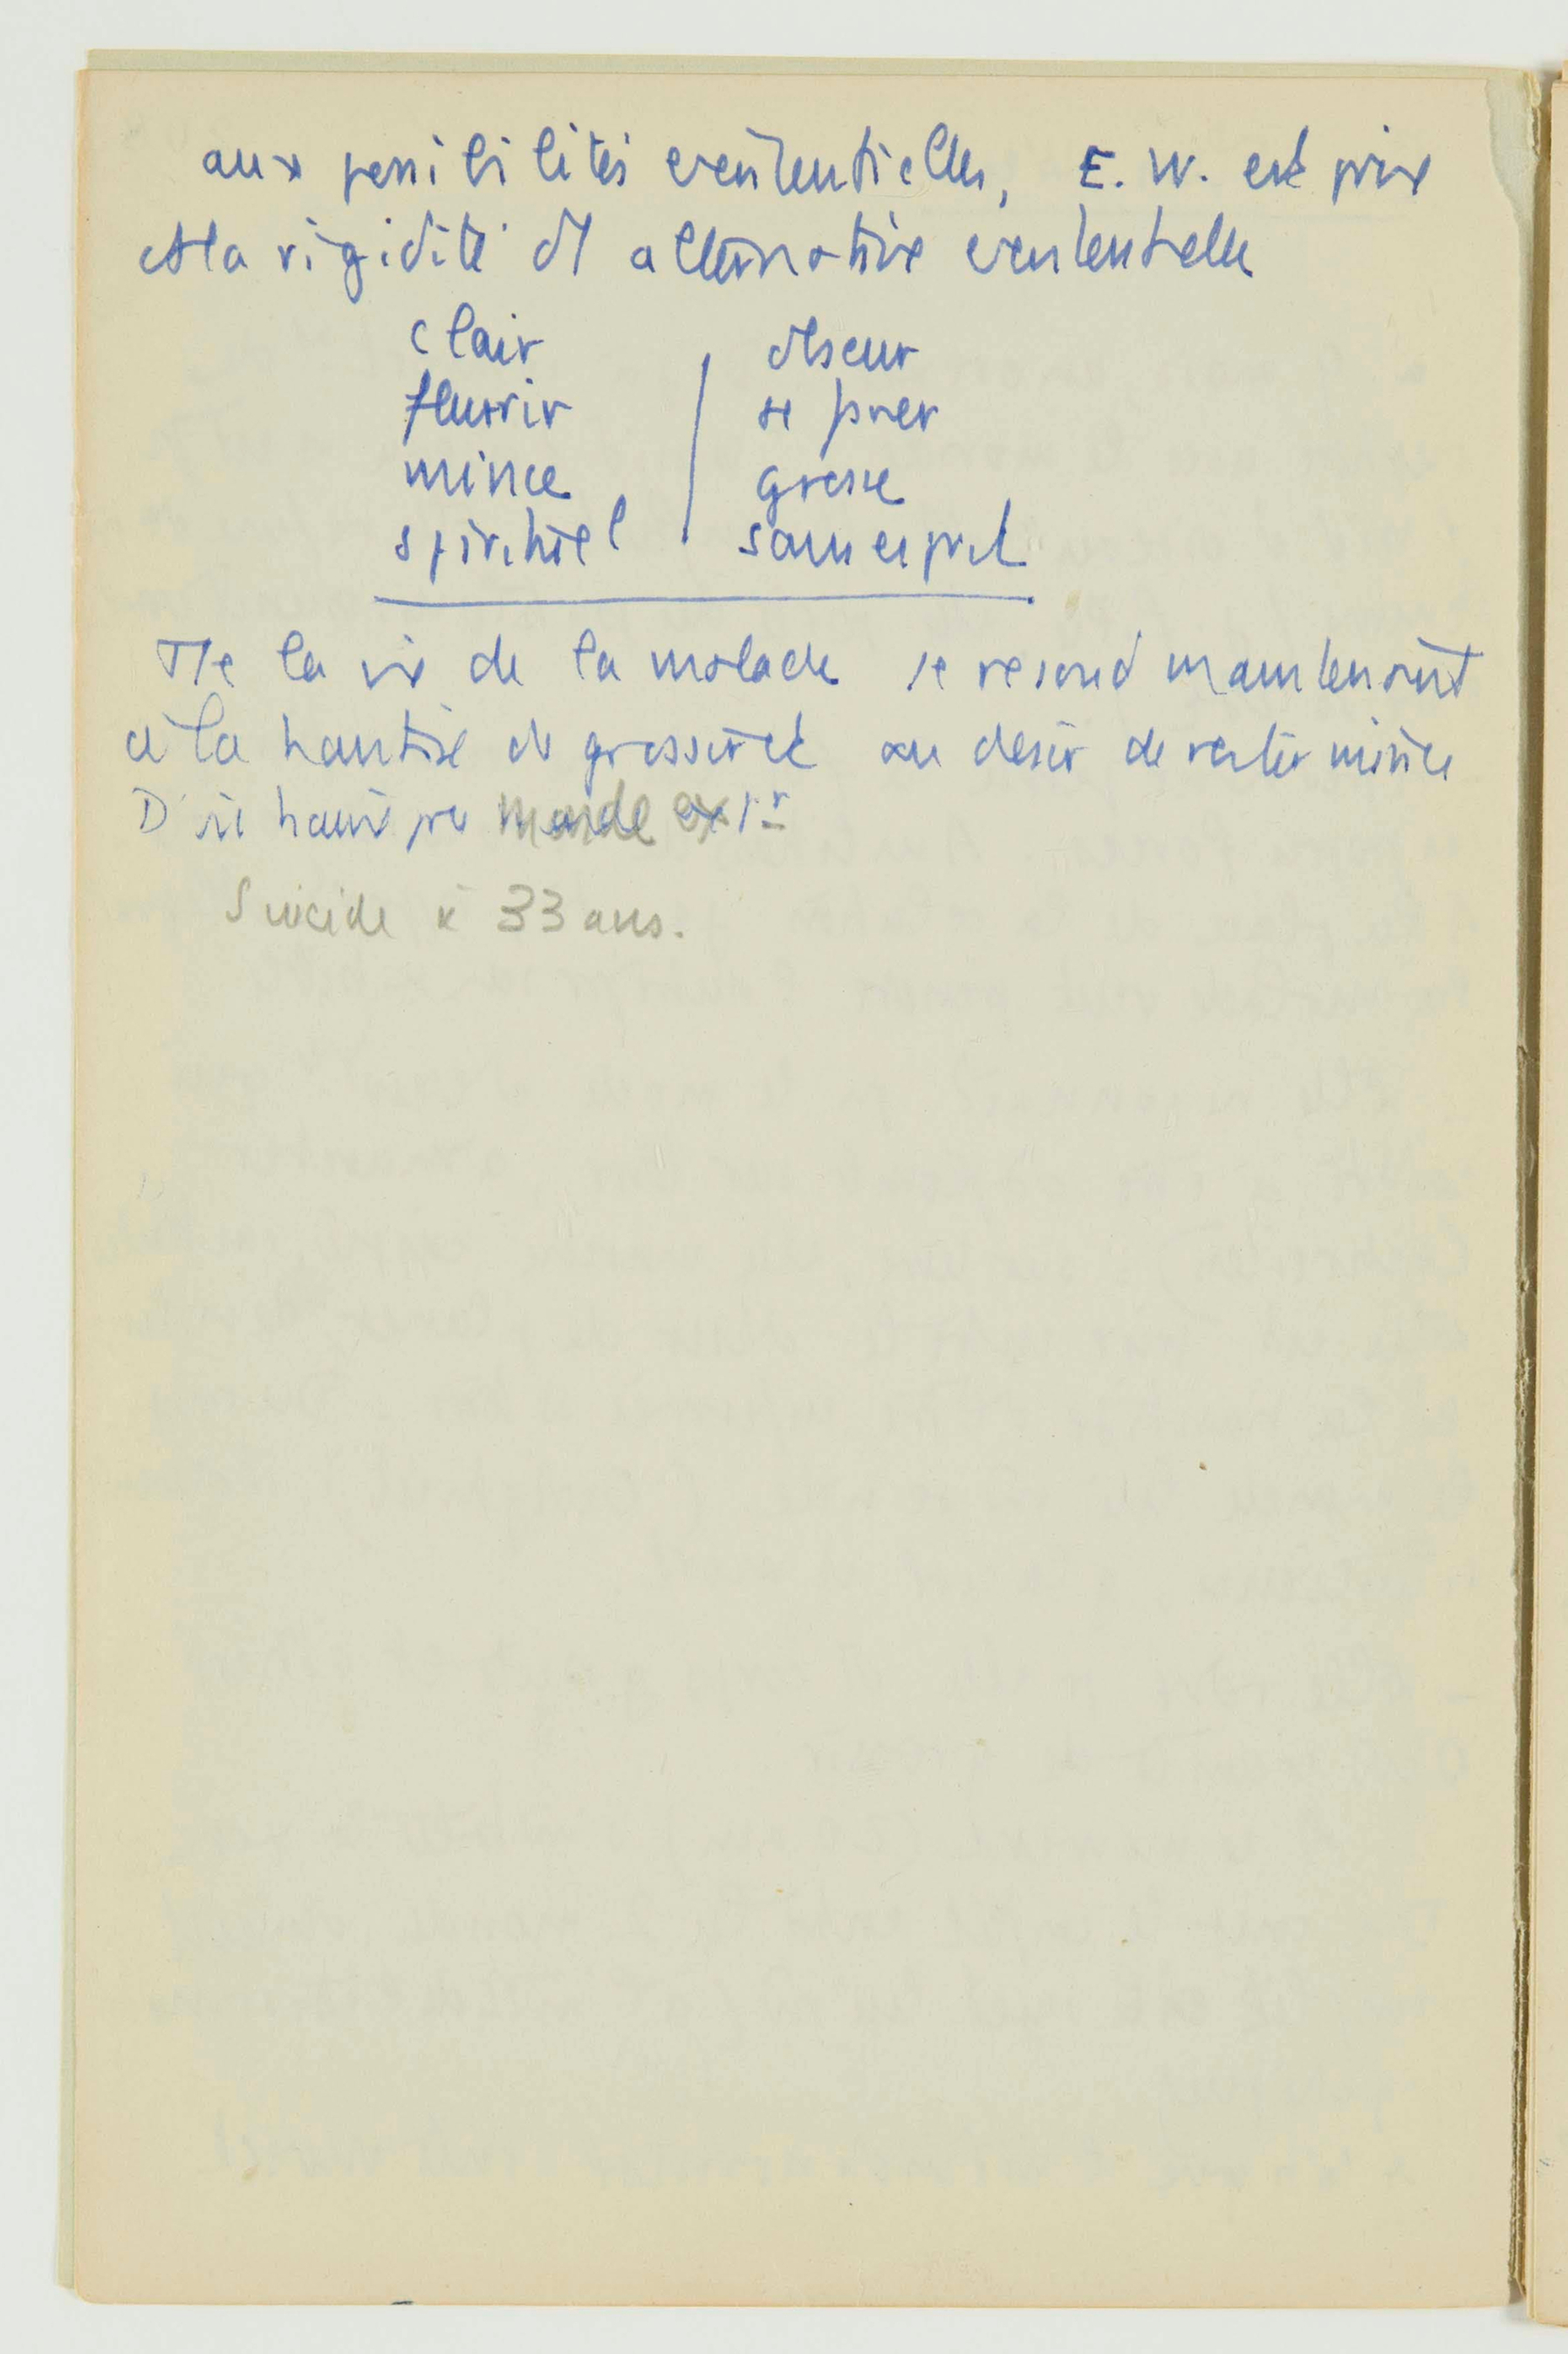 aux possibilités existentielles, E. W. est prise
ds la rigidité d'1 alternative existentielle
clair / obscur
fleurir / se faner
mince / grosse
spirituel / sans esprit
Tte la vie de la malade se résoud maintenant
à la hantise de grossir et au désir de rester mince
monde extr
Suicide à 33 ans.